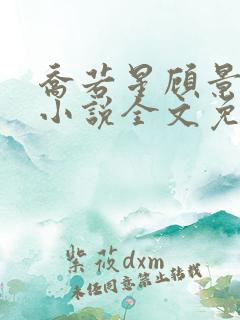 乔若星顾景
小说全文免
紫筱dxm
未经同意禁止转载